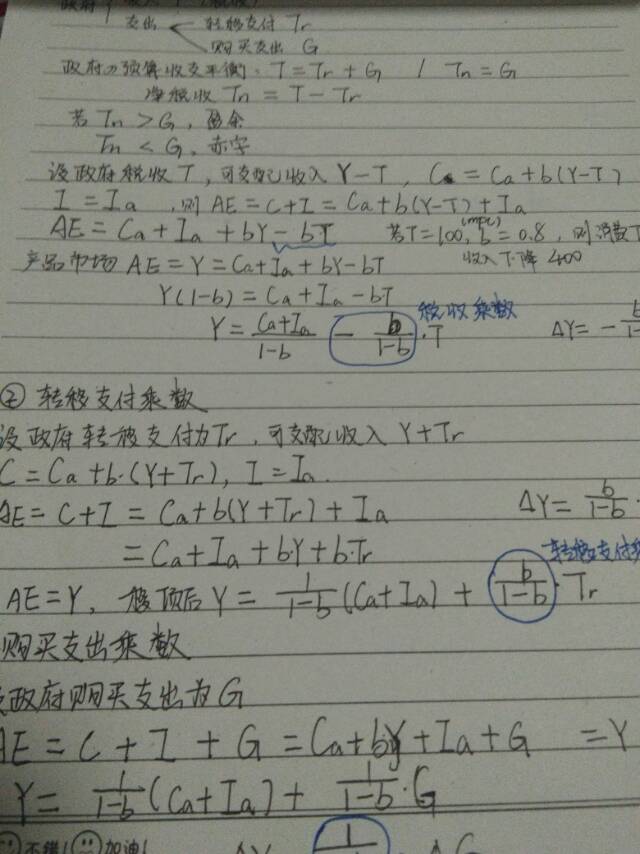 政府
支出 转移支付 Tr
购买支出 G
政府的预算收支平衡: T = Tr + G / Tn = G
净税收 Tn = T - Tr
若 Tn > G, 盈余
Tn < G, 赤字
设政府税收T, 可支配收入 Y-T, C = Ca + b(Y-T)
I = Ia, 则 AE = C+I = Ca + b(Y-T) + Ia
AE = Ca + Ia + bY - bT 若T=100, b(mpc) = 0.8, 则消费T
产品市场 AE = Y = Ca + Ia + bY - bT 收入下降 400
Y(1-b) = Ca + Ia - bT
税收乘数
Y = (Ca+Ia)/(1-b) - b/(1-b) · T ΔY = -
② 转移支付乘数
设政府转移支付为Tr, 可支配收入 Y+Tr
C = Ca + b·(Y+Tr), I = Ia.
AE = C+I = Ca + b(Y+Tr) + Ia ΔY = b/(1-b) ·
= Ca + Ia + b·Y + b·Tr
转移支付乘
AE = Y, 移项后 Y = 1/(1-b) (Ca+Ia) + b/(1-b) · Tr
购买支出乘数
政府购买支出为G
AE = C + I + G = Ca + bY + Ia + G = Y
Y = 1/(1-b) (Ca+Ia) + 1/(1-b) · G
不错! 加油!